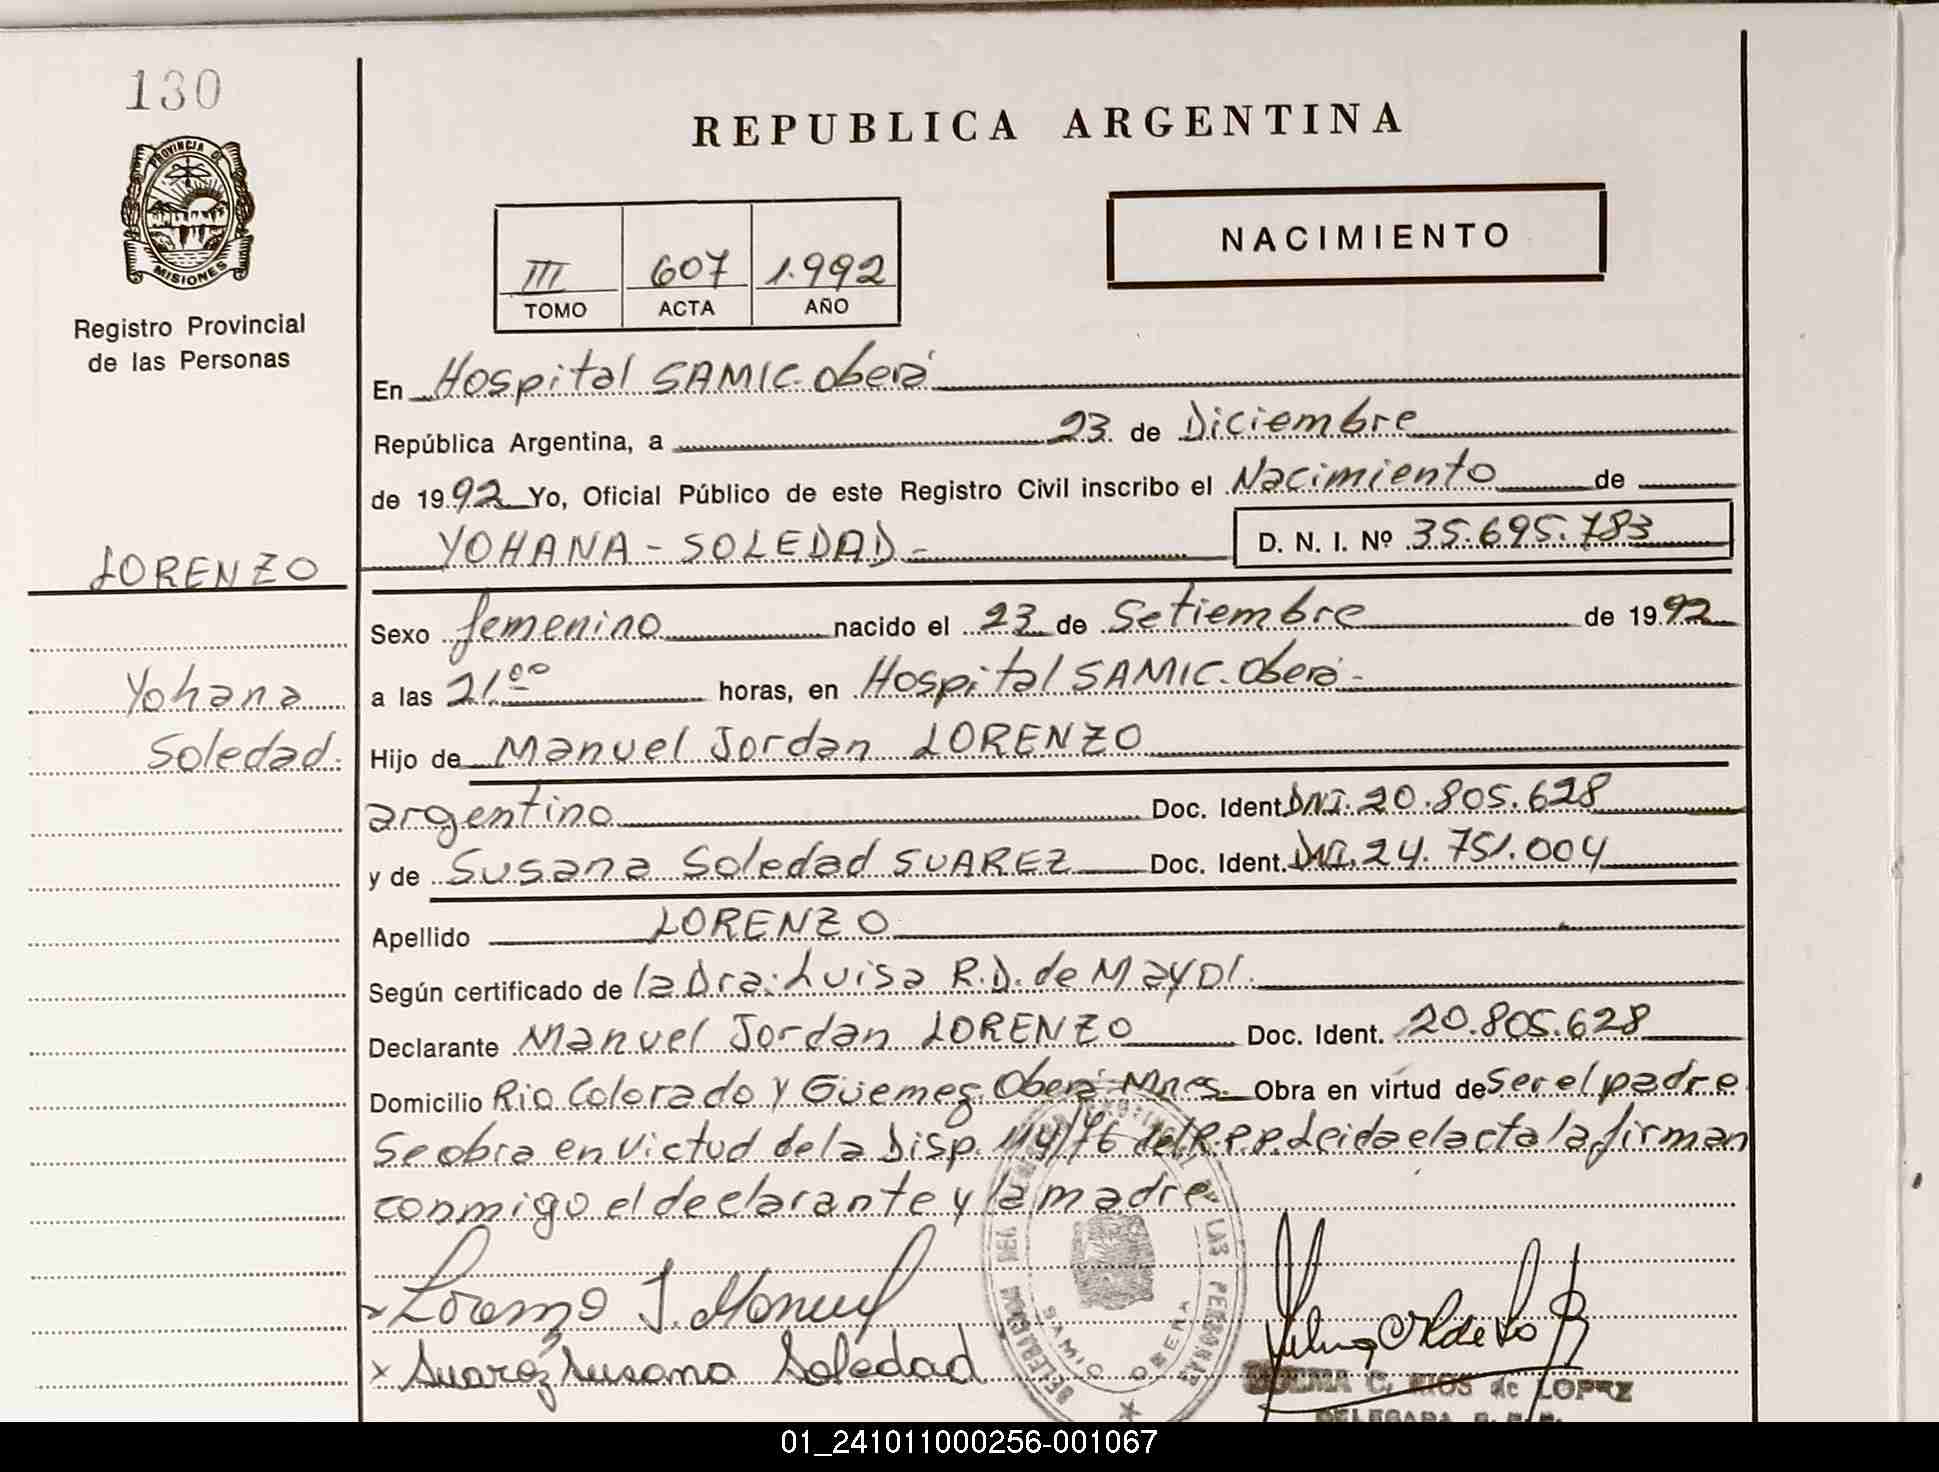 130
PROVINCIA DE
MISIONES
Registro Provincial
de las Personas
LORENZO
Yohana
Soledad.
REPUBLICA ARGENTINA
III 607 1.992
TOMO ACTA AÑO
NACIMIENTO
En Hospital SAMIC. Oberá
República Argentina, a 23 de Diciembre
de 1992 Yo, Oficial Público de este Registro Civil inscribo el Nacimiento de
YOHANA - SOLEDAD - D. N. I. Nº 35.695.783
Sexo femenino nacido el 23 de Setiembre de 1992
a las 21.00 horas, en Hospital SAMIC. Oberá -
Hijo de Manuel Jordan LORENZO
argentino Doc. Ident. DNI. 20.805.628
y de Susana Soledad SUAREZ Doc. Ident. DNI. 24.751.004
Apellido LORENZO
Según certificado de la Dra. Luisa R.D. de Mayol.
Declarante Manuel Jordan LORENZO Doc. Ident. 20.805.628
Domicilio Rio Colorado y Güemes. Oberá Mnes. Obra en virtud de Ser el padre
Se obra en virtud de la Disp. 114/76 del R.P.P. Leida el acta la firman
conmigo el declarante y la madre
x Lorenzo J. Manuel
x Suarez Susana Soledad
DELEGACION
LAS PERSONAS
SAMIC OBERA
C. RIOS de LOPEZ
DELEGADA R. P. P.
01_241011000256-001067